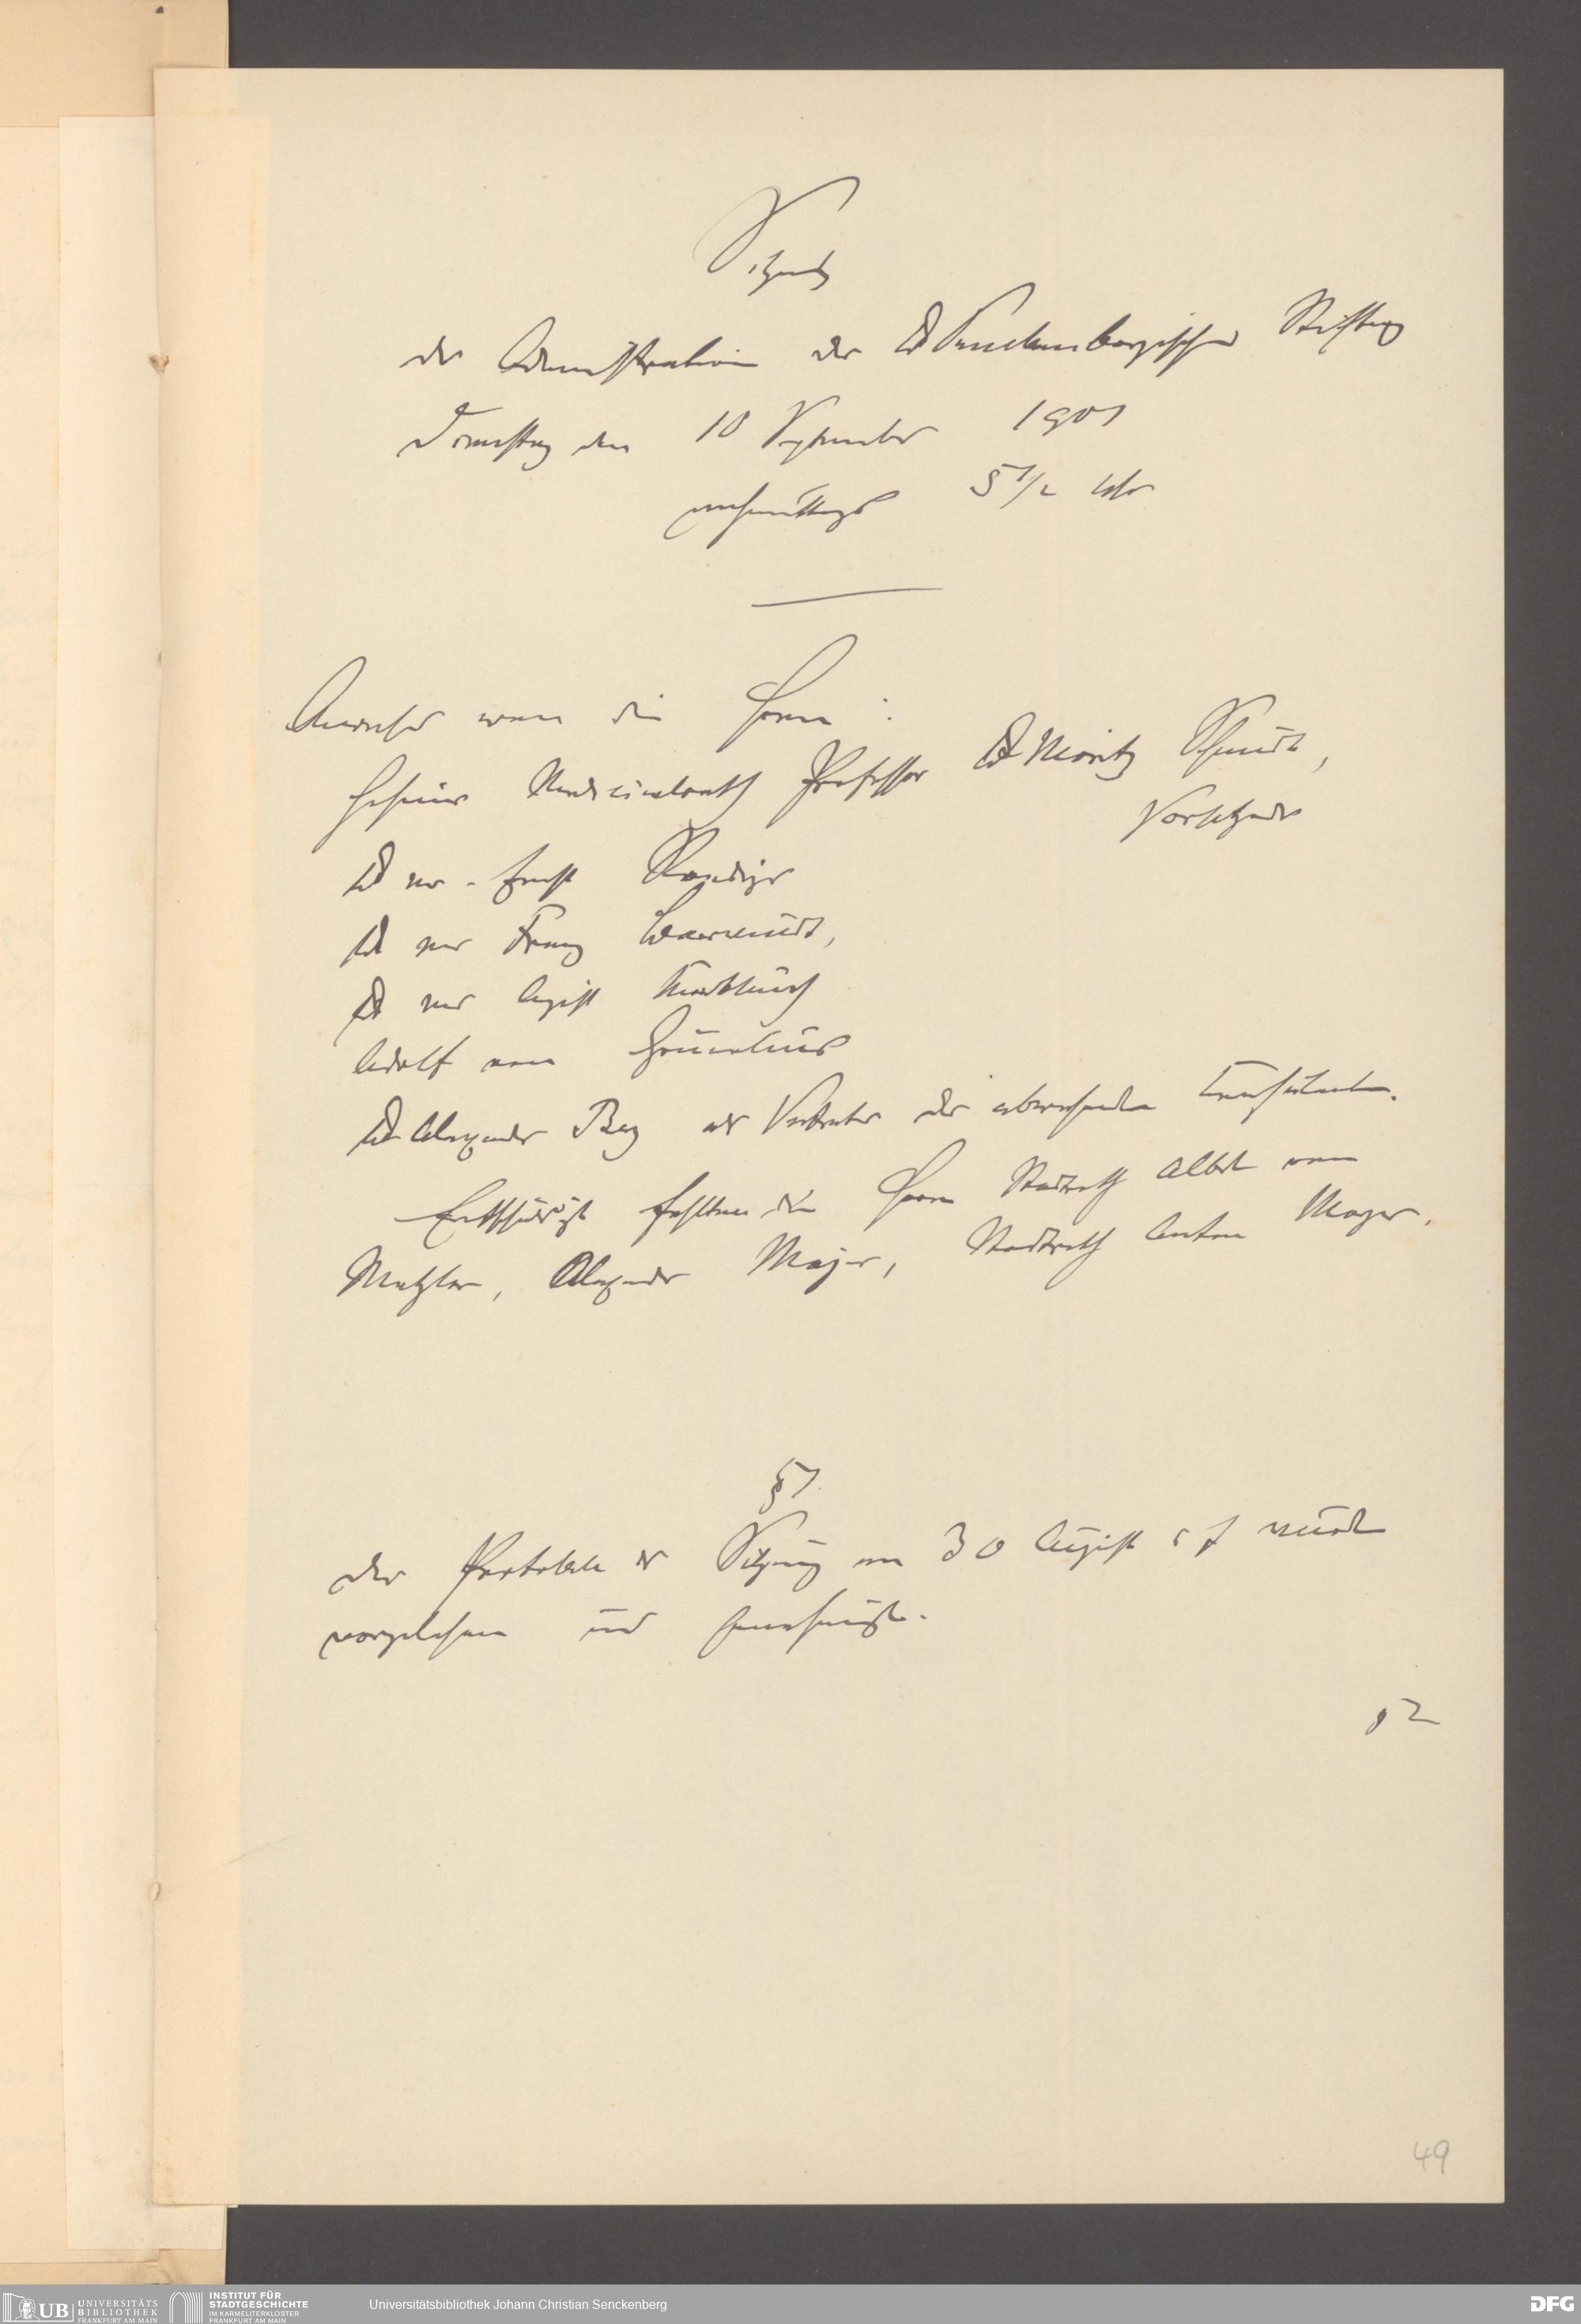 Sitzung
der Administration der Dr Senckenbergischen Stiftung
Dienstag den 10 September 1901
nachmittags 5 1/2 Uhr
Anwesend waren die Herren:
Geheimer Medicinalrath Professor Dr Moritz Schmidt,
Vorsitzender
Dr med Ernst Roediger
Dr med Franz
Dr med August
Adolf von Grunelius
Dr Alexander Berg als Vertreter der abwesenden Consulenten.
Entschuldigt fehlten die Herrn Stadtrath Albert von
Metzler, Alexander Majer, Stadtrath Anton Mayer.
§1
Das Protokoll der Sitzung vom 30 August wurde
vorgelesen und genehmigt.
§2
49
UB UNIVERSITÄTS
BIBLIOTHEK
FRANKFURT AM MAIN
INSTITUT FÜR
STADTGESCHICHTE
IM KARMELITERKLOSTER
FRANKFURT AM MAIN
Universitätsbibliothek Johann Christian Senckenberg
DFG